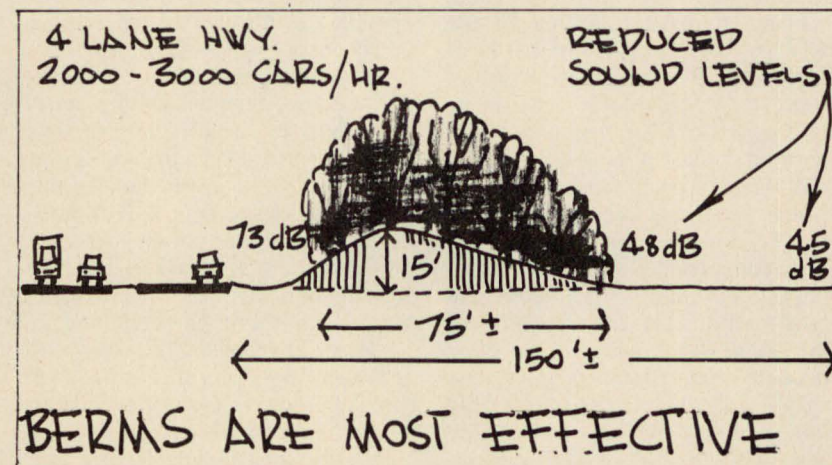 4 LANE HWY.
2000 - 3000 CARS/HR.
REDUCED
SOUND LEVELS
73 dB
15'
48 dB
45
dB
75' ±
150' ±
BERMS ARE MOST EFFECTIVE